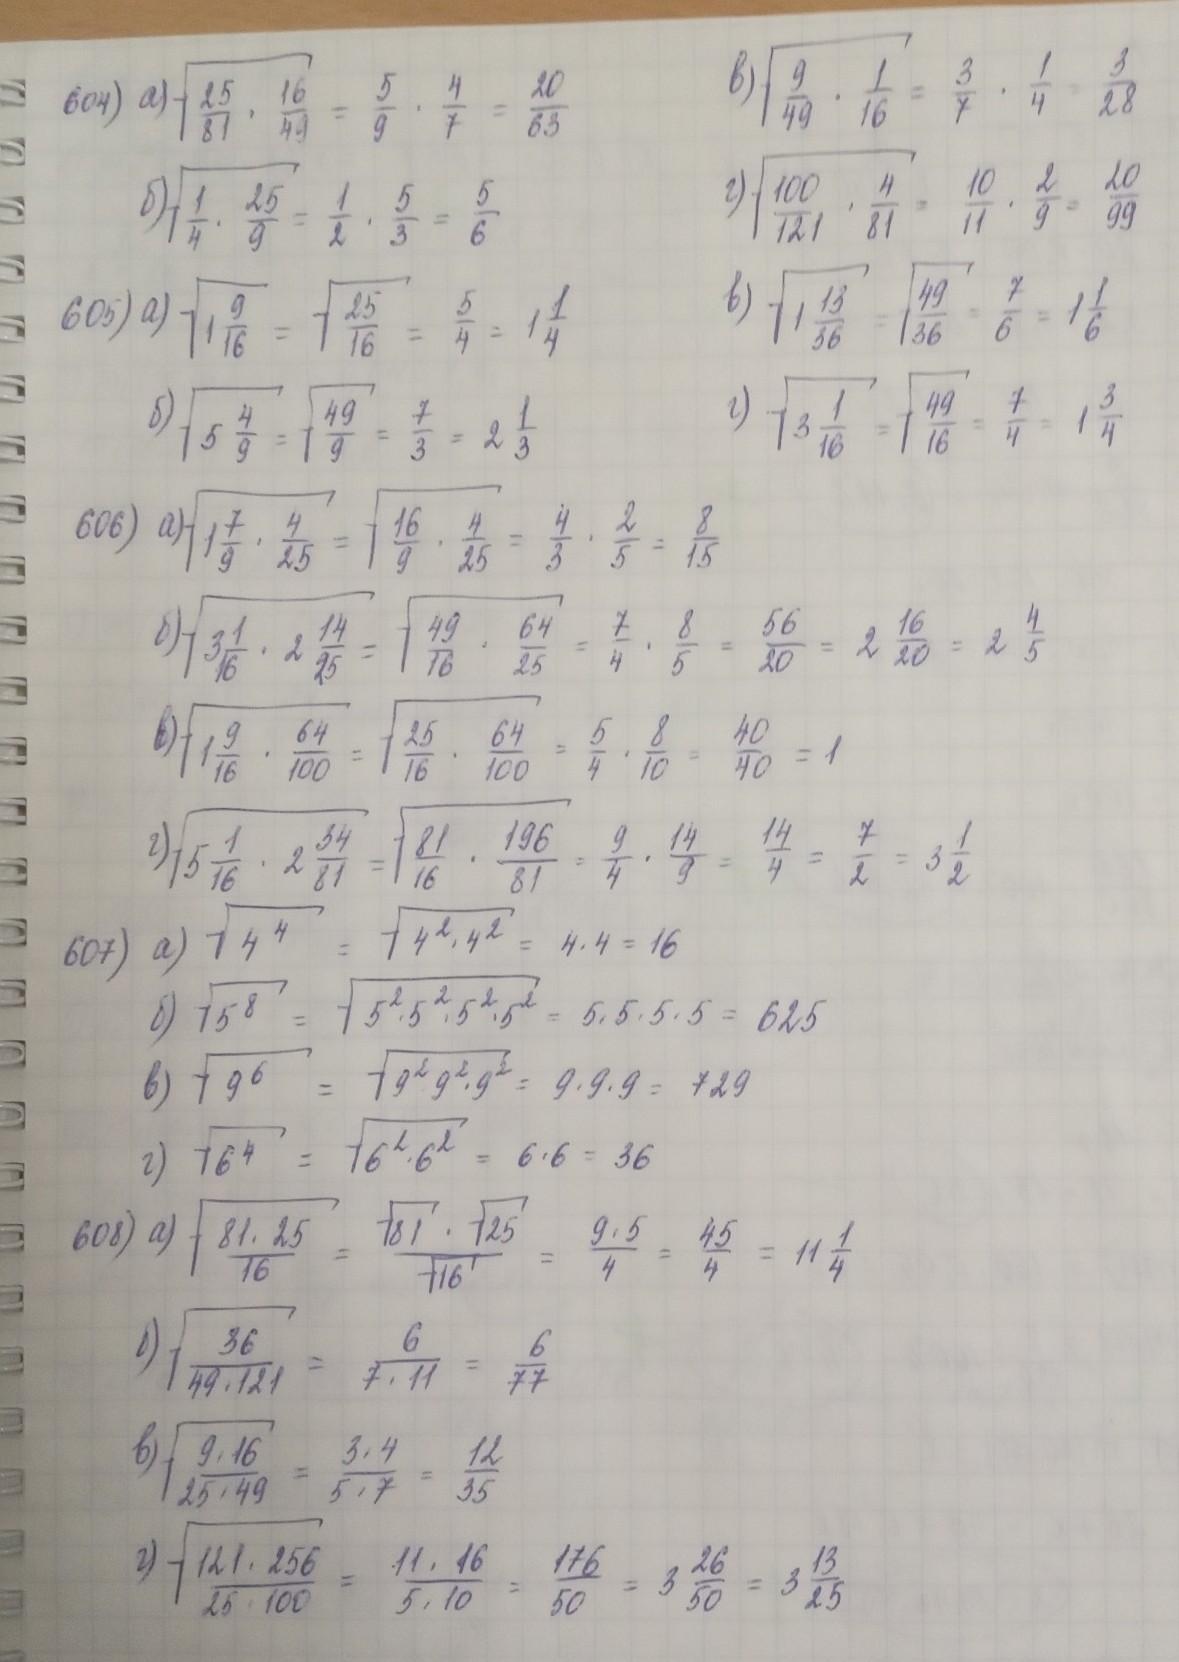 604) а) √(25/81 · 16/49) = 5/9 · 4/7 = 20/63
в) √(9/49 · 1/16) = 3/7 · 1/4 = 3/28
б) √(1/4 · 25/9) = 1/2 · 5/3 = 5/6
г) √(100/121 · 4/81) = 10/11 · 2/9 = 20/99
605) а) √(1 9/16) = √(25/16) = 5/4 = 1 1/4
в) √(1 13/36) = √(49/36) = 7/6 = 1 1/6
б) √(5 4/9) = √(49/9) = 7/3 = 2 1/3
г) √(3 1/16) = √(49/16) = 7/4 = 1 3/4
606) а) √(1 7/9 · 4/25) = √(16/9 · 4/25) = 4/3 · 2/5 = 8/15
б) √(3 1/16 · 2 14/25) = √(49/16 · 64/25) = 7/4 · 8/5 = 56/20 = 2 16/20 = 2 4/5
в) √(1 9/16 · 64/100) = √(25/16 · 64/100) = 5/4 · 8/10 = 40/40 = 1
г) √(5 1/16 · 2 34/81) = √(81/16 · 196/81) = 9/4 · 14/9 = 14/4 = 7/2 = 3 1/2
607) а) √(4⁴) = √(4² · 4²) = 4 · 4 = 16
б) √(5⁸) = √(5² · 5² · 5² · 5²) = 5 · 5 · 5 · 5 = 625
в) √(9⁶) = √(9² 9² · 9²) = 9 · 9 · 9 = 729
г) √(6⁴) = √(6² · 6²) = 6 · 6 = 36
608) а) √((81 · 25)/16) = (√81 · √25)/√16 = (9 · 5)/4 = 45/4 = 11 1/4
б) √(36/(49 · 121)) = 6/(7 · 11) = 6/77
в) √((9 · 16)/(25 · 49)) = (3 · 4)/(5 · 7) = 12/35
г) √((121 · 256)/(25 · 100)) = (11 · 16)/(5 · 10) = 176/50 = 3 26/50 = 3 13/25